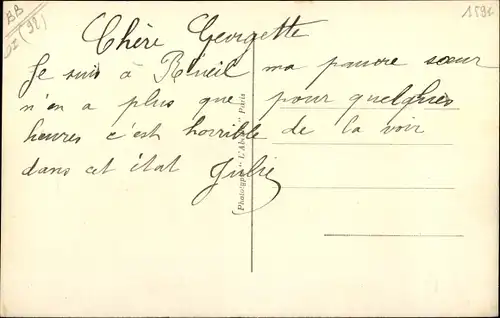 BB
(92)
Chère Georgette
Je suis à Rueil ma pauvre sœur
n'en a plus que pour quelques
heures c'est horrible de la voir
dans cet état Julie
Photograph "L'Ab " Paris